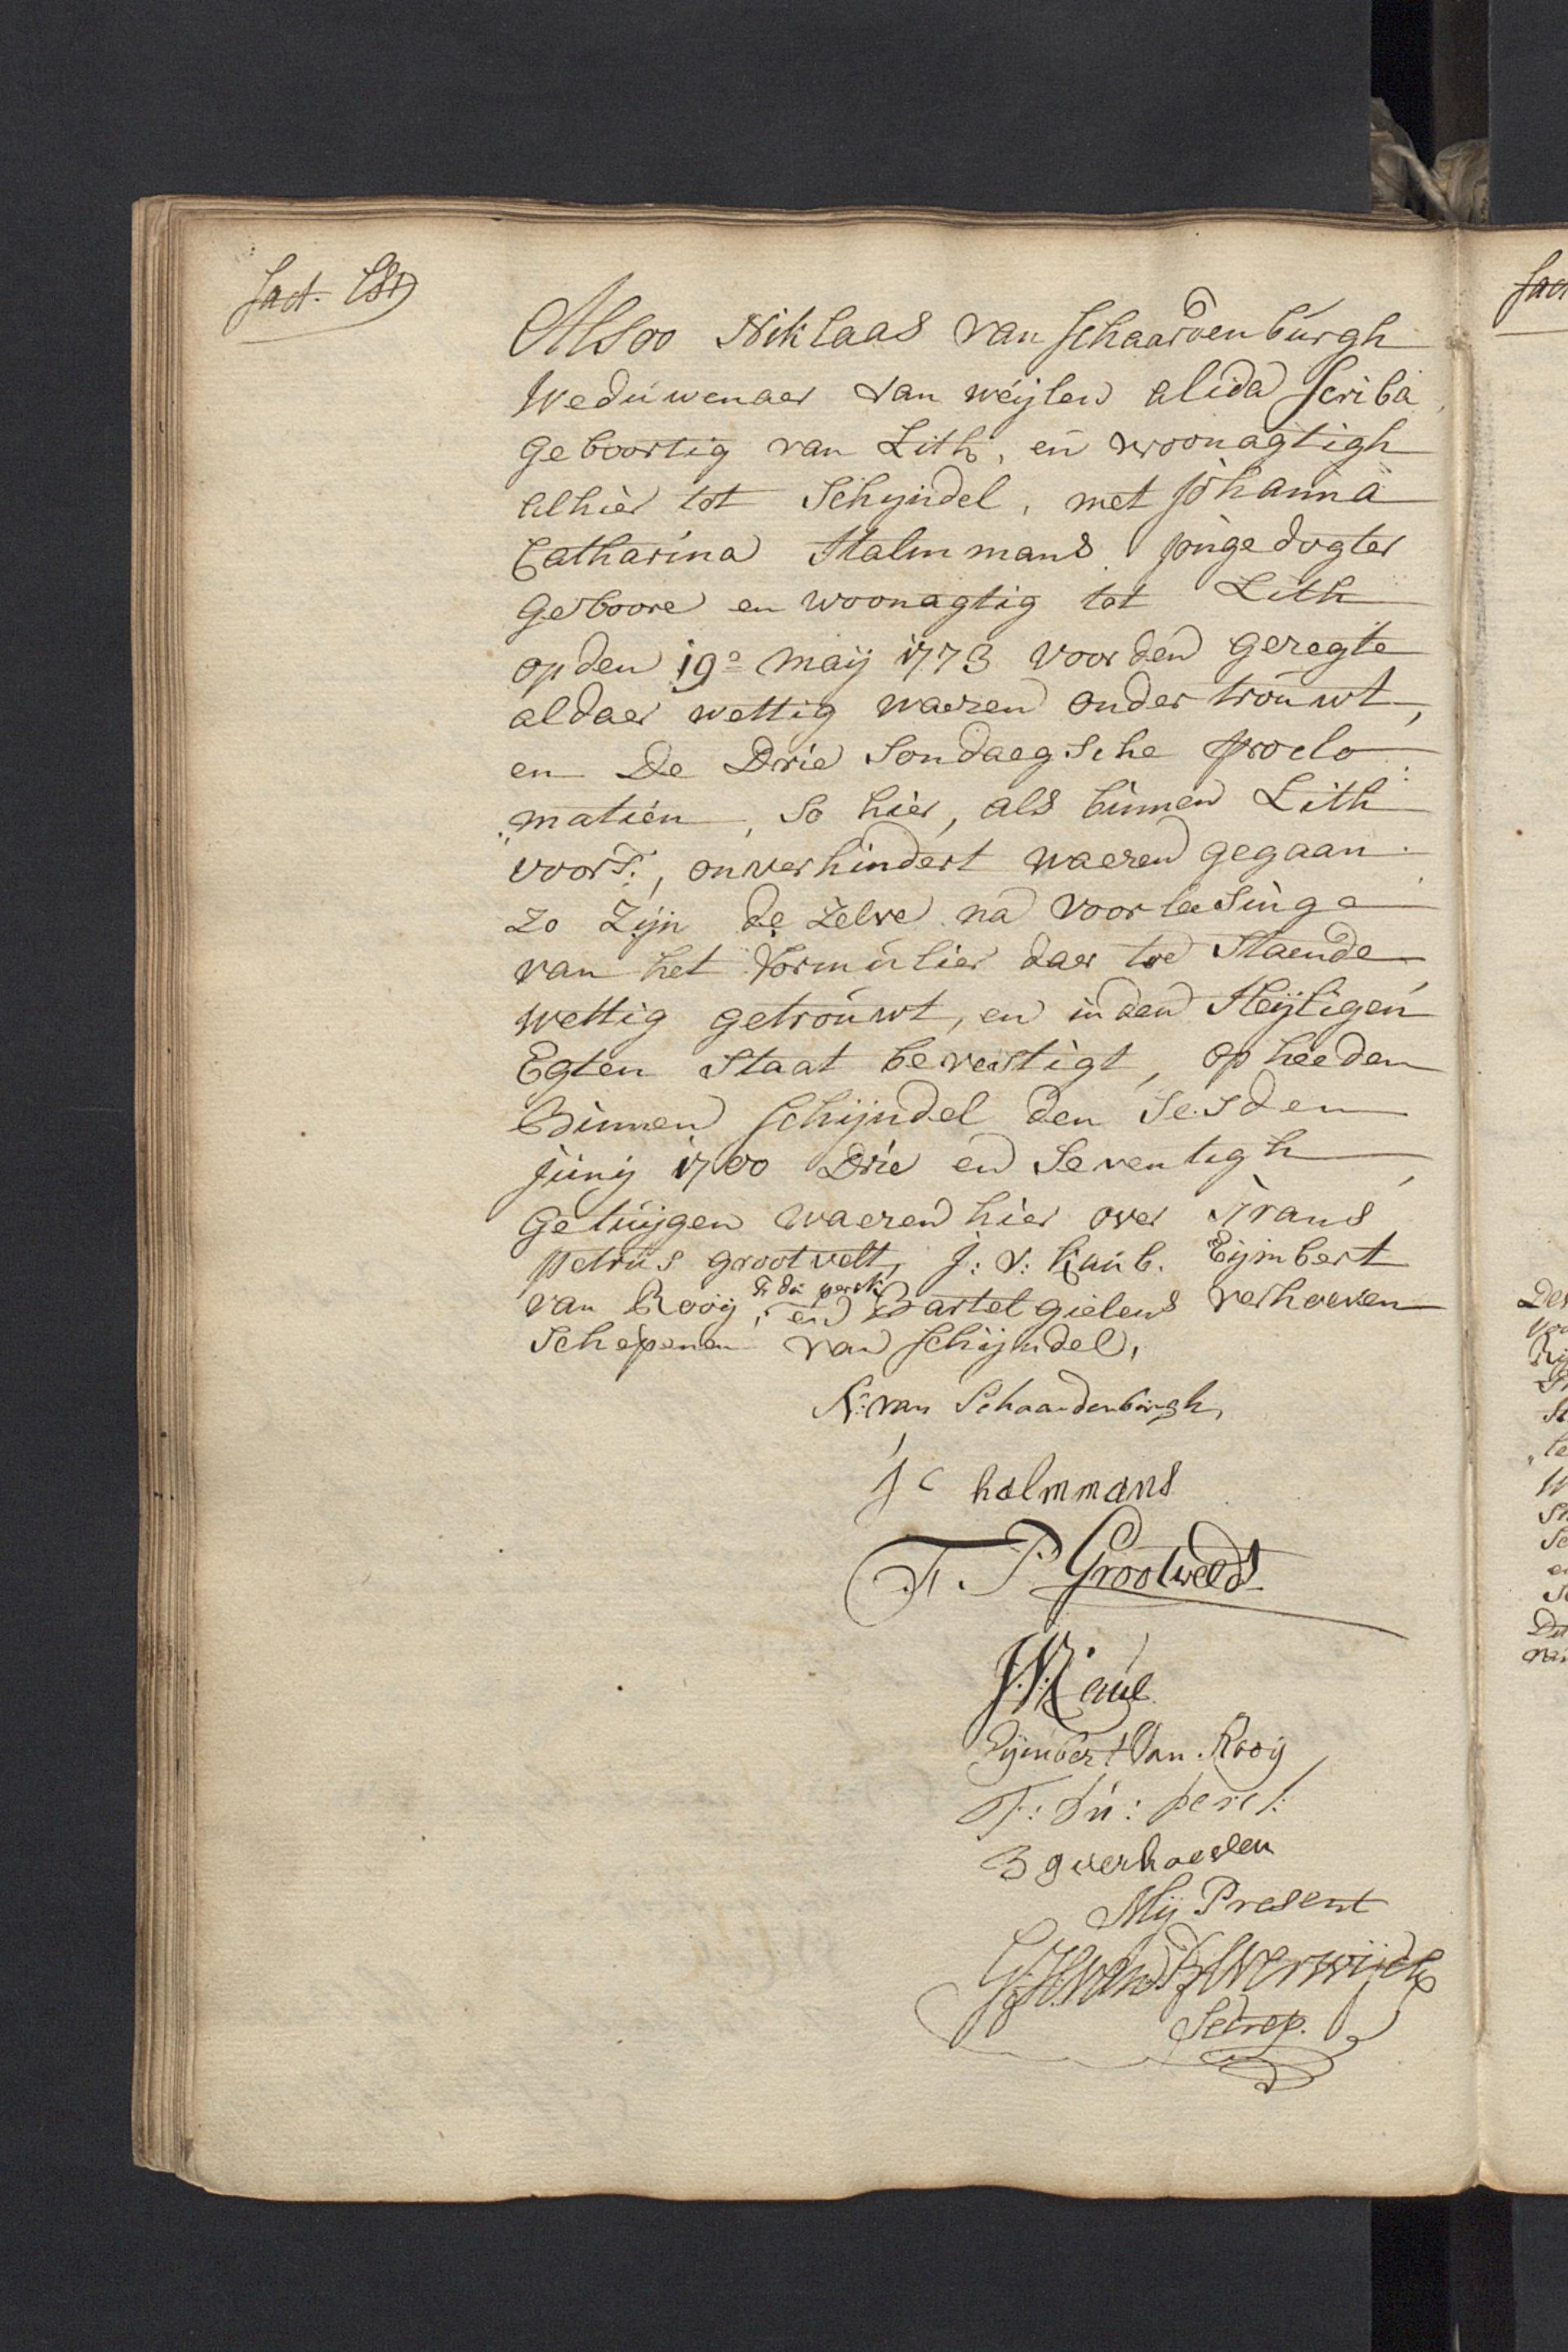 fact.
Alsoo Niklaas van Schaardenburgh
Weduwenaer van weijlen alida Scriba
Geboortig van Lith, en woonagtigh
alhier tot Schyndel, met Johanna
Catharina Halmmans jongedogter
Geboore en woonagtig tot Lith
op den 19e maij 1773 voor den geregte
aldaer wettig waeren ondertrouwt,
en De Drie Sondaegsche procla
matien, So hier, als binnen Lith
voors:, onverhindert waeren gegaan.
zo Zijn de Zelve na voorleesinge
van het formulier daer toe Staende
wettig getrouwt, en in den Heijligen
Egten Staat bevestigt, op heeden
Binnen Schijndel den Sesden
Junij 1700 Drie en Seventigh,
Getuijgen waeren hier over Frans
Petrus grootvelt, J: V: Eijmbert
van Rooij, en Bartel gielens verhoeven
Schepenen van Schijndel,
N: van Schaardenburgh,
J C halmmans
F. P Grootveldt
Eijmbert Van Rooij
F: du: pers:
B g verhoeven
Mij Present
Secrets.
fact